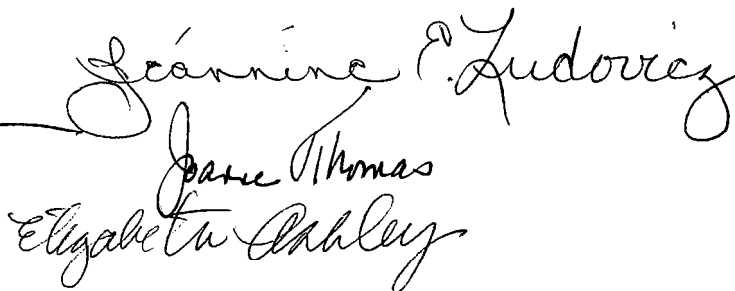 Jeannine P. Ludovicz
Joanne Thomas
Elizabeth Ashley